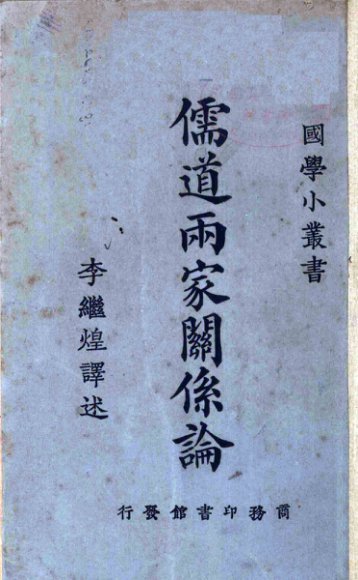 國學小叢書
儒道兩家關係論
李繼煌譯述
商務印書館發行